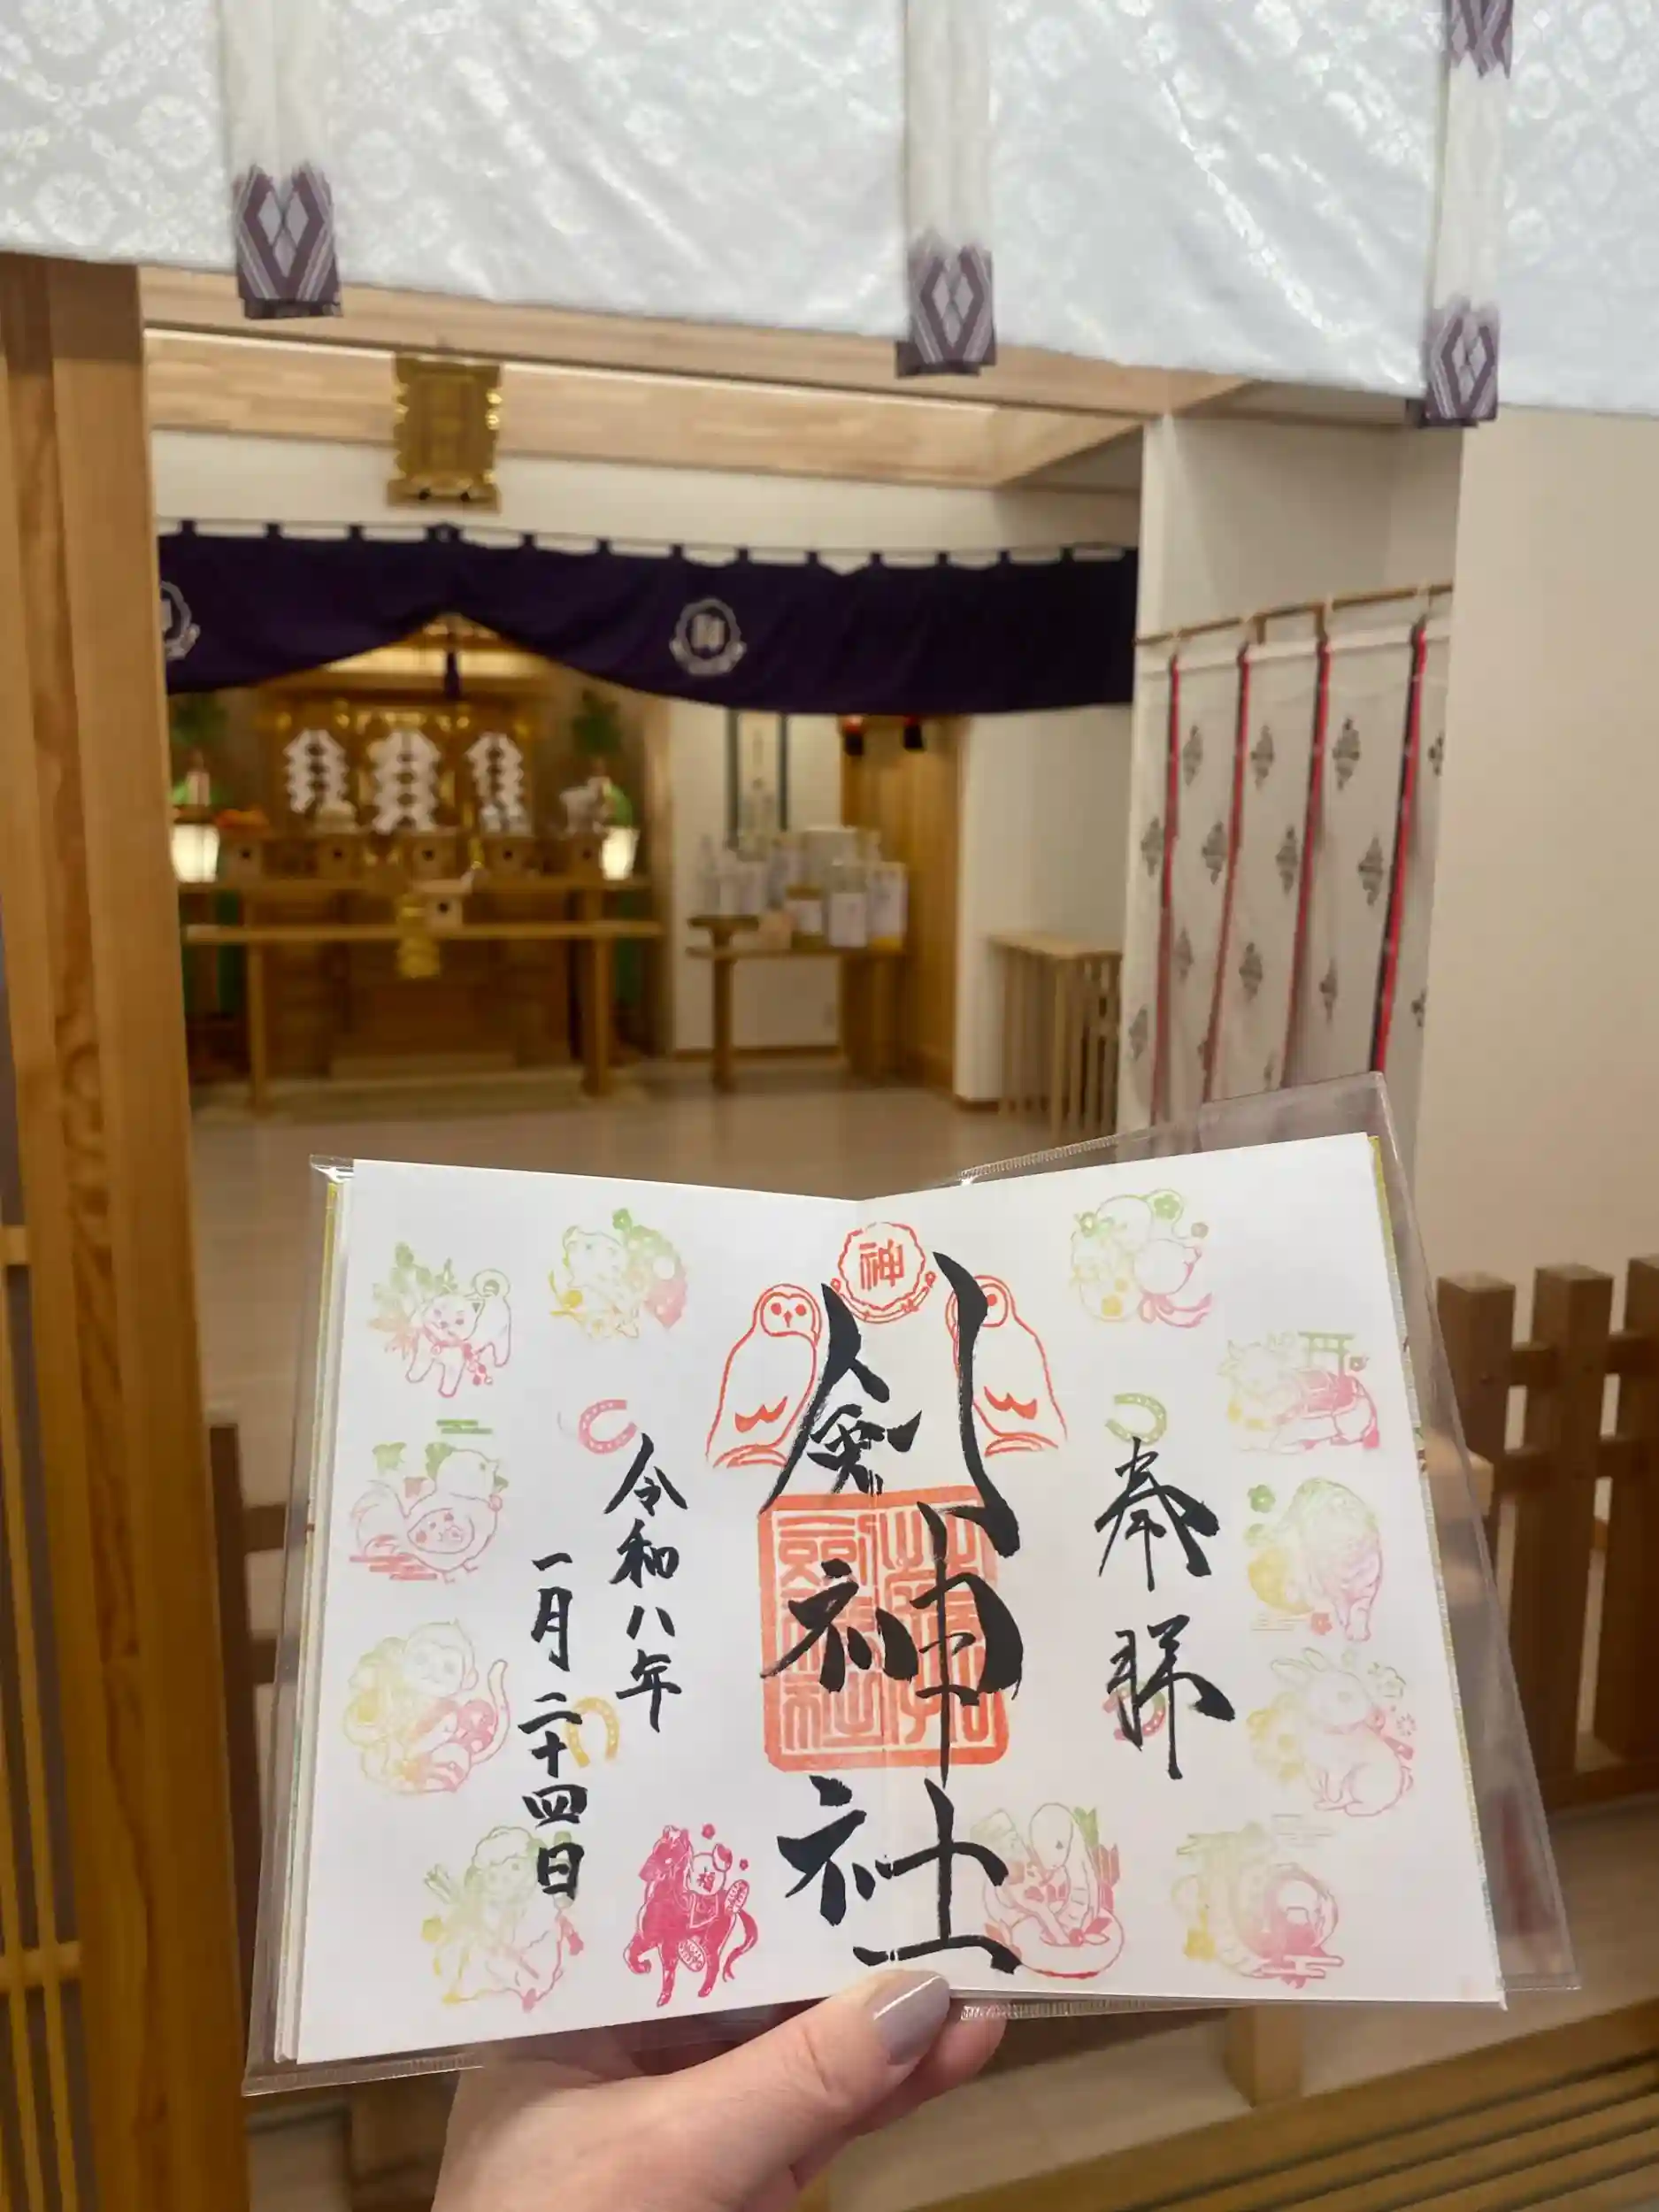 奉拝
神
剣神社
令和八年
一月二十四日
福